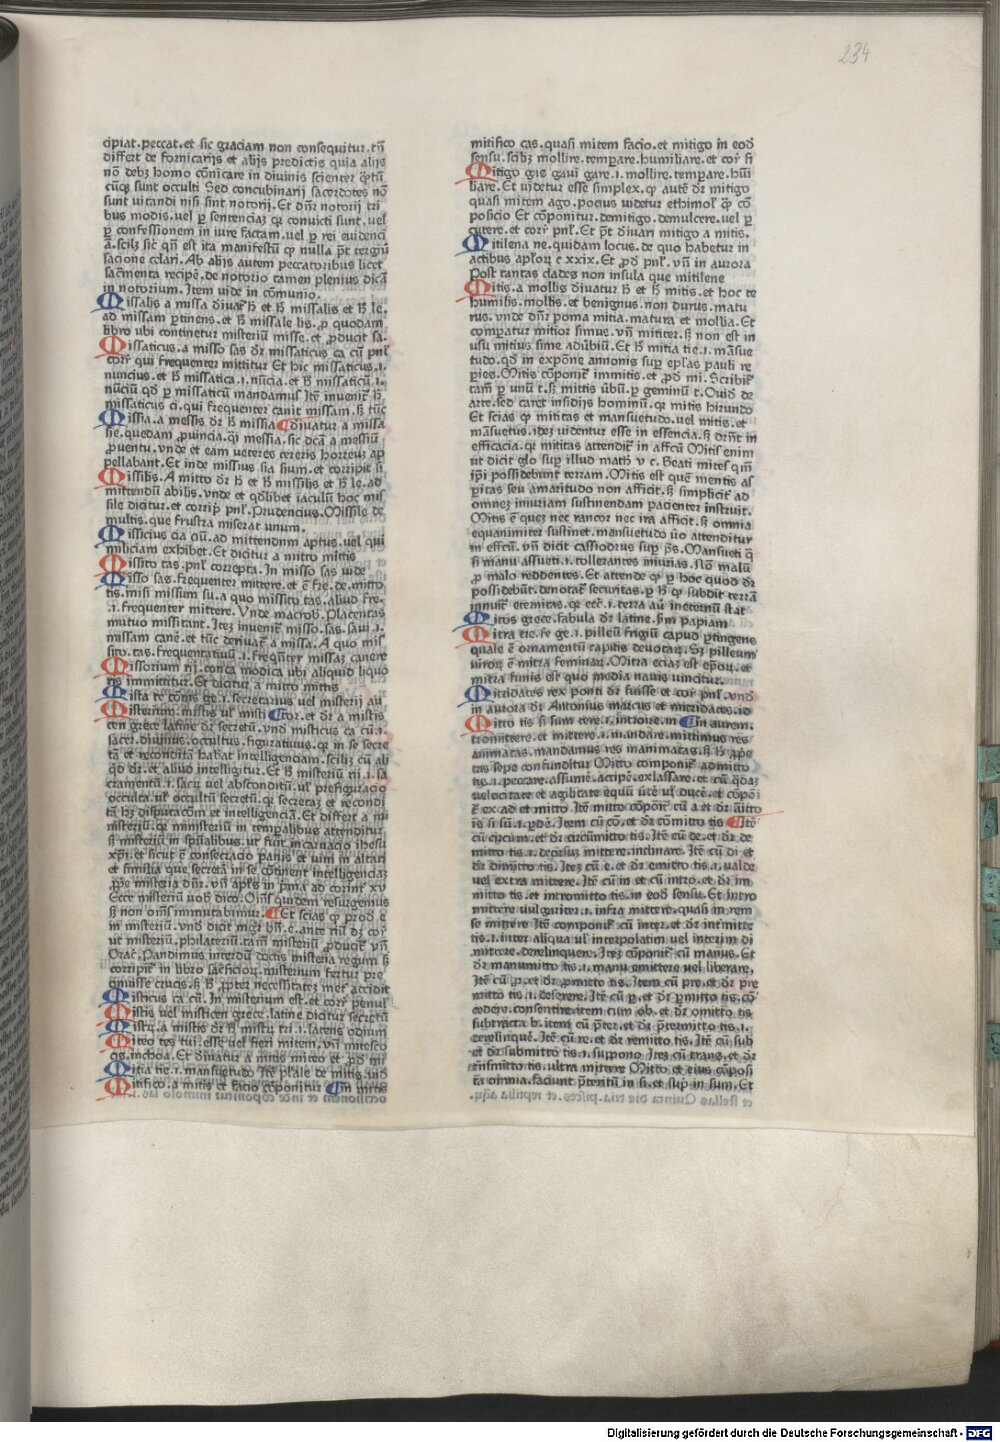 234
cipiat.peccat.et sic graciam non consequitur.tñ
differt de fornicarijs et alijs predictis quia alijs
nõ debꝫ homo cõnicare in diuinis scienter qͣtũ
cũqꝫ sunt occulti Sed concubinarij sacerdotes nõ
sunt uitandi nisi sint notorij.Et dñr notorij tri
bus modis.uel ꝑ sentenciaꝫ qꝛ conuicti sunt.uel
ꝑ confessionem in iure factam.uel ꝑ rei euidenci
ã.scilꝫ sic qñ est ita manifestũ qͥ nulla p̃t tergiũ
sacione celari.Ab alijs autem peccatoribus licet
sacͣmenta recipẽ.de notorio tamen plenius dicã
in notorium.Item uide in cõmunio.
Missalis a missa diuatͬ ħ et ħ missalis et ħ le.
ad missam ꝑtinens.et ħ missale lis.ꝑ quodam
libro ubi continetur misteriũ misse.et ꝓducit sa.
Missaticus.a misso sas dr̃ missaticus ca cũ pnĺ
corͬ qui frequenter mittitur Et hic missaticus.i.
nuncius.et ħ missatica.i.nũcia.et ħ missaticũ.i.
nũciũ qd ꝑ missaticũ mandamus Itẽ inuenitͬ ħ
missaticus ci.qui frequenter canit missam.ꝫ tũc
Missia.a messis dr̃ ħ missia diuatur a missa
sie.quedam ꝓuincia.qͥ messia.sic dicã a messiũ
ꝓuentu.vnde et eam ueteres cereris horreuꝫ ap
pellabant.Et inde missius sia sium.et corripit si
Missilis.A mitto dr̃ ħ et ħ missilis et ħ le.ad
mittendũ abilis.vnde et qdlibet iaculũ hoc mis
sile dicitur.et corripͬ pnĺ.Prudencius.Missile de
multis.que frustra miserat unum.
Missicius cia ciũ.ad mittendnm aptus.uel qui
miliciam exhibet.Et dicitur a mitto mittis
Missito tas.pnĺ correpta.In misso sas uide
Misso sas.frequenter mittere.et ẽ fre.de.mitto
tis.misi missum su.a quo missito tas.aliud fre.
.i.frequenter mittere.Vnde macrob.Placentas
mutuo missitant.Iteꝫ inuenitͬ misso.sas.saui.i.
missam canẽ.et tũc deriuatͬ a missa.A quo mis
sito.tas.frequentatiuũ.i.freqñter missaꝫ canere
Missorium rij.conca modica ubi aliquid liquo
ris immittitur.Et dicitur a mitto mittis
Mista te tonis ge.i.secretarius uel misterij au
Misterium.mistis uĺ misti tor.et dr̃ a mistis
cen grece latine dr̃ secretũ.vnd misticus ca cũ.i.
sacer.diuinus.occultus.figuratiuus.qꝛ in se secre
tã et reconditã habat intelligenciam.scilicꝫ cũ ali
qͥd dr̃.et aliud intelligitur.Et ħ misteriũ rij.i.sa
cramentũ.i.sacꝝ uel absconditũ.uĺ prefiguracio
occulta.uĺ occultũ secretũ.qꝛ secretaꝫ et recondi
tã hꝫ disputacõem et intelligenciã.Et differt a mi
nisteriũ.qꝛ ministeriũ in temꝑalibus attenditur
ꝫ misteriũ in spũalibus.ut fuit incarnacio ihesu
xpi.et sicut ẽ consecracio panis et uini in altari
et similia que secretã in se cõtinent intelligenciaꝫ
ꝓprie misteria dñr.vñ apĺus in pͥma ad corintͭ xv
Ecce misteriũ uob dico.Oĩs quidem resurgemus
ꝫ non oĩs immutabimur. Et scias qͥ prod̃ e
in misteriũ.vnd dicit mgr̃ bñ.e.ante riũ dꝫ corͬ
ut misteriũ.philateriũ.tam misteriũ ꝓduqtͬ vñ
Orac̃.Pandimus interdũ doctis misteria regum ꝫ
corripitͬ in libro sacficiorꝫ.misterium fertur pre
gnuisse crucis.ꝫ ħ ꝓpter necessitateꝫ metͬ accidit
Misticus ca cũ.In misterium est.et corͬ penulͭ
Mistis uel misticen grece.latine dicitur secretũ
Mistrꝫ.a mistio dr̃ ħ mistrꝫ tri.i.latens odium
Miteo tes tui.esse uel fieri mitem.vñ mitesco
cis.inchoa.Et diuatur a mitis miteo et ꝓd mi
Mitia tie.i.mansuetudo Itẽ plãle de mitis.uid
Mitifico.a mitis et facio cõponitur In mitto
mitifico cas.quasi mitem facio.et mitigo in eod
sensu.scilicꝫ mollire.temꝑare.humiliare.et corͬ fi
Mitigo gis gaui gare.i.mollire.temꝑare.hũi
liare.Et uidetur esse simplex.qꝫ autẽ dr̃ mitigo
quasi mitem ago.pocius uidetur ethimoĺ qͣ cõ
posicio Et cõponitur.demitigo.demulcere.uel ꝑ
cutere.et corͬ pnĺ.Et p̃t diuari mitigo a mitis.
Mitilena ne.quidam locus.de quo habetur in
actibus apĺorꝫ c xxix.Et ꝓd pnĺ.vñ in aurora
Post tantas clades non insula que mitilene
Mitis.a mollis diuatur ħ et ħ mitis.et hoc te
humilis.mollis.et benignus.non durus.matu
rus.vnde dñr poma mitia.matura et mollia.Et
comꝑatur mitior simus.vñ mititer.ꝫ non est in
usu mitius sime adũbiũ.Et ħ mitia tie.i.mãsue
tudo.qd in expõne annonis sup epĺas pauli re
ꝑies.Mitis cõponitͬ immitis.et ꝓd mi.Scribitͬ
tam̃ ꝑ unũ t.ꝫ mittis ũbũ.ꝑ geminũ t.Ouid de
arte.sed caret insidijs hominũ.qꝛ mitis hirundo
Et scias qͥ mititas et mansuetudo.uel mitis.et
mãsuetus.ideꝫ uidentur esse in essencia.ꝫ dr̃nt in
efficacia.qꝛ mititas attenditͬ in affcũ Mitis enim
ut dicit glo sup illud math v c.Beati mites qm̃
ipi possidebunt terram.Mitis est quẽ mentis as
ꝑitas seu amaritudo non afficit.ꝫ simplicitͬ ad
omneꝫ iniuriam sustinendam pacienter instruit.
Mitis ẽ queꝫ nec rancor nec ira afficit.ꝫ omnia
equanimiter sustinet.mansuetudo ũo attenditur
in effcũ.vñ dicit cassiodrus sup ps̃.Mansueti qͥ
si manu assueti.i.tollerantes iniurias.Nõ malũ
ꝓ malo reddentes.Et attende qͥ ꝑ hoc quod dr̃
possidebũt.denotatͬ securitas.ꝑ ħ qͥ subdit terrã
innuitͬ eternitas.qꝛ ecc̃.i.terra aũ ineternũ stat
Mitos grece.fabula dr̃ latine.ẜm papiam
Mitra tre.fe ge.i.pilleũ frigiũ capud ꝑtingens
quale ẽ ornamentũ capitis deuotaꝝ.Sꝫ pilleum
uiroꝝ ẽ mitra feminaꝝ.Mitra eciaꝫ est epõꝝ.et
mitra funis est quo media nauis uincitur.
Mitridates rex ponti dr̃ fuisse et corͬ pnĺ.vnd
in aurora dr̃ Antonius marcus et mitridates.id
Mitto tis si sum tere.i.intro ire.in In aurem.
tromittere.et mittere.i.mandare.mittimus res
animatas.mandamus res inanimatas.ꝫ ħ ꝓpͥe
tas sepe confunditur Mitto componitͬ admitto
tis.i.peccare.assumẽ.accipẽ.exlassare.et cũ qͣdaꝫ
uelocitate et agilitate equũ ũte uĺ ducẽ.et cõpoñ
ẽ ex ad et mitto Itẽ mitto cõpoñtͬ cũ a et dr̃ amitto
is si sũ.i.ꝑdẽ.Item cũ cõ.et dr̃ cõmitto tis Itẽ
cũ circum.et dr̃ circũmitto tis.Itẽ cũ de.et dr̃ de
mitto tis.i.deorsuꝫ mittere.inclinare.Itẽ cũ di et
dr̃ dimitto tis.Iteꝫ cũ e.et dr̃ emitto tis.i.ualde
uel extra mittere.Itẽ cũ in et cũ intro.et dr̃ im
mitto tis.et intromitto tis.in eod sensu.Et intro
mittere uulgariter.i.infra mittere.quasi in rem
se mittere Itẽ componitͬ cũ inter.et dr̃ intmitto
tis.i.inter aliqua uĺ interpolatim uel interim di
mittere.derelinquere.Iteꝫ cõponitͬ cũ manus.Et
dr̃ manumitto tis.i.manu emittere uel liberare.
Itẽ cũ ꝓ.et dr̃ ꝓmitto tis.Item cũ pre.et dr̃ pre
mitto tis.i.deserere.Itẽ cũ ꝑ.et dr̃ ꝑmitto tis.cõ
cedere.consentire.item cum ob.et dr̃ omitto tis
subtracta b.item cũ p̃ter.et dr̃ p̃termitto tis.i.
derelinquẽ.Itẽ cũ re.et dr̃ remitto tis.Itẽ cũ sub
et dr̃ submitto tis.i.suppono.Iteꝫ cũ trans.et dr̃
trãsmitto tis.ultra mittere Mitto et eius cõposi
tã omnia.faciunt p̃teritũ in si.et supͥ in sum.Et
Digitalisierung gefördert durch die Deutsche Forschungsgemeinschaft - DFG